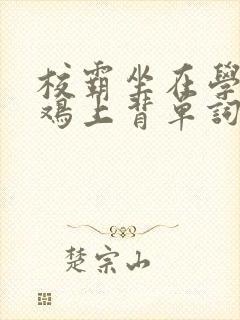 校霸坐在學
鴉上背單詞
楚宗山